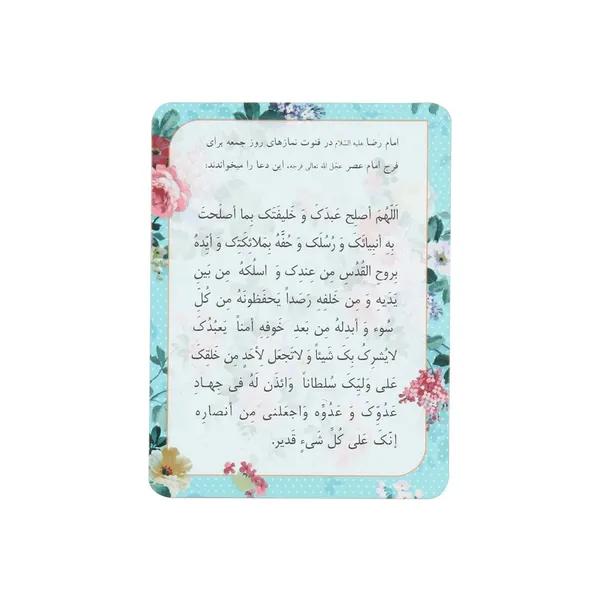 امام رضا علیه السّلام در قنوت نمازهای روز جمعه برای
فرج امام عصر عجّل الله تعالی فرجه، این دعا را میخواندند:
اَللّهُمَ أصلِح عبدَکَ وَ خَلیفَتَک بما أصلَحتَ
بِهِ أنبیائَکَ وَ رُسُلَک وَ حُفَّهُ بِمَلائِکَتِکَ وَ أیِّدهُ
بروحِ القُدُسِ مِن عندِکَ وَ اسلُکهُ مِن بَینِ
یَدَیهِ وَ مِن خَلفِهِ رَصَداً یَحفَظونَهُ مِن کُلِّ
سُوء وَ أبدِلهُ مِن بعدِ خَوفِهِ أمناً یَعبُدُکَ
لایُشرِکُ بِکَ شَیئاً وَ لاتَجعَل لأحَدٍ مِن خَلقِکَ
عَلی وَلیِّکَ سُلطاناً وَائذَن لَهُ فی جِهادِ
عَدُوِّکَ وَ عَدُوِّه وَاجعَلنی مِن أنصارِه
إنَّکَ عَلی کُلِّ شَیءٍ قَدیر.